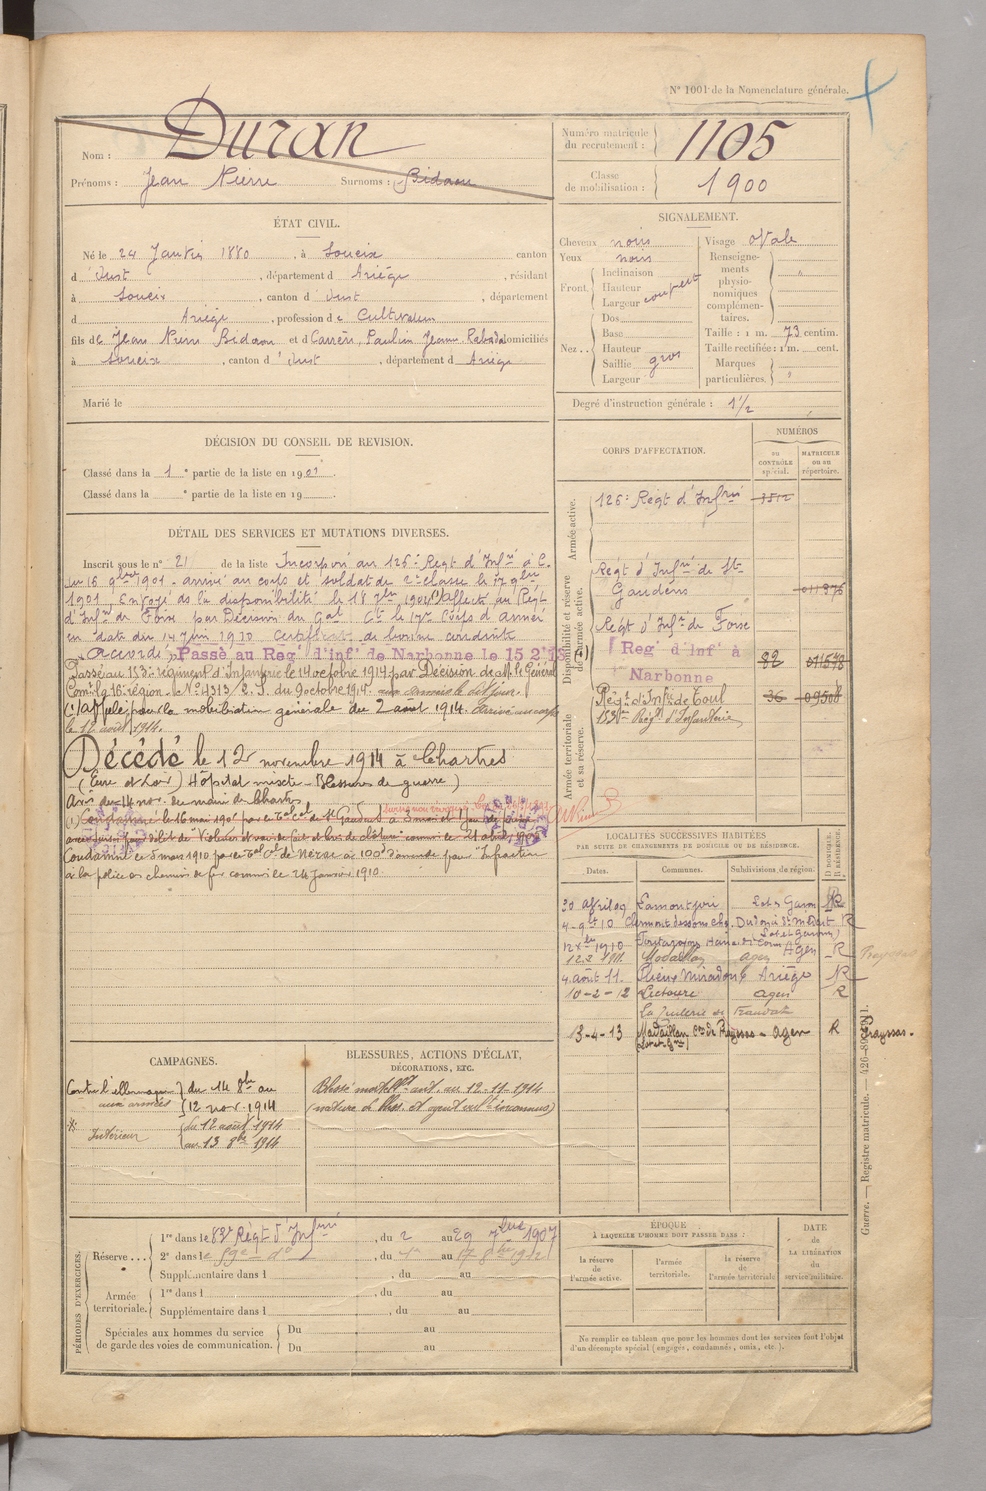 N° 1001 de la Nomenclature générale.
Nom : Duran
Prénoms : Jean Pierre Surnoms : Bidaou
Numéro matricule du recrutement : 1105
Classe de mobilisation : 1900
ÉTAT CIVIL.
Né le 24 Janvier 1880, à Soueix canton
d'Oust, département d Ariége, résidant
à Soueix, canton d'Oust, département
d Ariége, profession de Cultivateur
fils de Jean Pierre Bidaou et d Carrère, Pauline Jeanne domiciliés
à Soueix, canton d'Oust, département d Ariége
Marié le
SIGNALEMENT.
Cheveux noirs
Yeux noirs
Front. Inclinaison
Hauteur
Largeur
Nez.. Dos
Base
Hauteur
Saillie gros
Largeur
Visage Ovale
Renseignements physionomiques complémentaires.
Taille : 1 m. 73 centim.
Taille rectifiée : 1 m. cent.
Marques particulières.
Degré d'instruction générale : 1/2
DÉCISION DU CONSEIL DE REVISION.
Classé dans la 1e partie de la liste en 1901.
Classé dans la e partie de la liste en 19 .
DÉTAIL DES SERVICES ET MUTATIONS DIVERSES.
Inscrit sous le n° 21 de la liste Incorporé au 126e Régt d'Infrie à C.
du 16 9bre 1901. arrivé au corps et soldat de 2e classe le 17 9bre
1901, Envoyé ds la disponibilité le 18 7bre 1904 (1) Affecté au Régt
d'Infie de Foix par Décision du Gal Ct le 17e Corps d'armée
en date du 14 Juin 1910 Certificat de bonne conduite
"Accordé" Passé au Reg' d'inf' de Narbonne le 15 2
Passé au 153e régiment d'Infanterie le 14 octobre 1914 par Décision de M. le Général
Comt la 16e région. N° 4313/2. S. du 9 octobre 1914. aux armées le dit jour.
(1) Appelé pour la mobilisation générale du 2 aout 1914. Arrivé au corps
le 12 août 1914.
Décédé le 12 novembre 1914 à Chartres
(Eure et Loir) Hôpital mixte - Blessures de guerre)
Avis du 14 nov. du maire de Chartres
(1) Condamné le 16 mai 1901 par le Tal Cel de St Gaudens à 3 mois et 1 jour de prison
Condamné le 5 mars 1910 par le Tal Cel de Nérac à 100 d'amende pour Infraction
à la police des chemins de fer commis le 24 Janvier 1910.
CORPS D'AFFECTATION.
NUMÉROS
au CONTRÔLE spécial.
MATRICULE ou au répertoire.
Armée active.
126e Régt d'Infrie 1512
Disponibilité et réserve de l'armée active.
Régt d'Infie de St-
Gaudens 011876
Régt d'Infie de Foix
Reg' d'Inf' à
Narbonne 82
Armée territoriale et sa réserve.
Régt d'Infie de Toul 36 09504
153e Régt d'Infanterie
LOCALITÉS SUCCESSIVES HABITÉES
PAR SUITE DE CHANGEMENTS DE DOMICILE OU DE RÉSIDENCE.
Dates. Communes. Subdivisions de région. D DOMICILE. R RÉSIDENCE.
20 Avril 09 Lamontjoie Lot et Garon R
4-9bre 10 Clermont dessous R
(Lot et Garonne)
1910 Agen R
12.2 1911 Madaillan Agen
4 août 11. Plieux Miradoux Ariége R
10-2-12 Lectoure Agen R
13-4-13 Madaillan Con de Prayssas - Agen R Prayssas.
(Lot-et-Gne)
CAMPAGNES.
Contre l'Allemagne du 14 8bre au
aux armées 12 nov. 1914
Intérieur du 12 août 1914
au 13 8bre 1914
BLESSURES, ACTIONS D'ÉCLAT,
DÉCORATIONS, ETC.
Blessé mortellt ant. au 12-11-1914
(nature de bless. et agent vult inconnus)
PÉRIODES D'EXERCICES.
Réserve... 1re dans le 83e Régt d'Infrie, du 2 au 29 7bre 1907
2e dans le 59e do, du au 17 8bre 1912
Supplémentaire dans l , du au
Armée territoriale. 1re dans l , du au
Supplémentaire dans l , du au
Spéciales aux hommes du service de garde des voies de communication. Du au
Du au
ÉPOQUE
À LAQUELLE L'HOMME DOIT PASSER DANS :
la réserve de l'armée active.
l'armée territoriale.
la réserve de l'armée territoriale
DATE DE LA LIBÉRATION du service militaire.
Ne remplir ce tableau que pour les hommes dont les services font l'objet
d'un décompte spécial (engagés, condamnés, omis, etc.).
Guerre. — Registre matricule. —